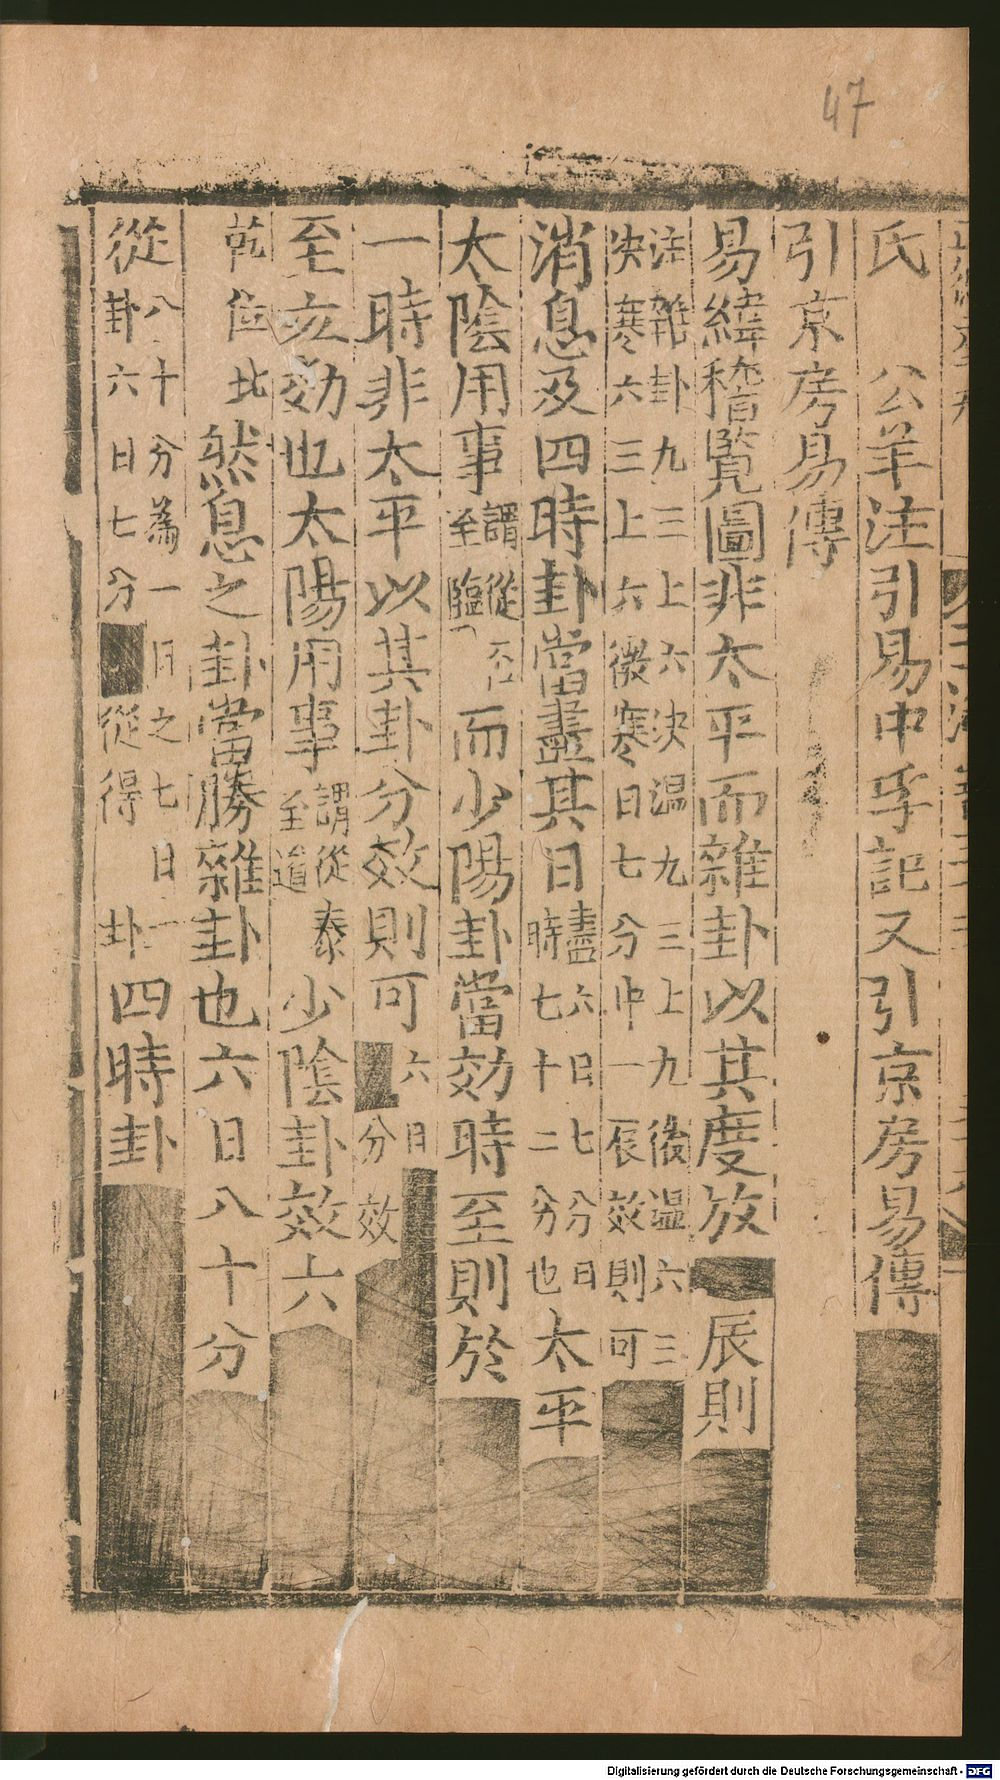 47
氏 公羊注引易中孚記又引京房易傳
引京房易傳
易緯稽覽圖非太平而雜卦以其度放 辰則
注雜卦九三上六決温九三上九後温六三
決寒六三上六微寒日七分中一辰效則可
消息及四時卦當盡其日盡六日七分日時七十二分也太平
太陰用事謂從否至臨而少陽卦當効時至則於
一時非太平以其卦分效則可六日分效
至亥効也太陽用事謂從泰至遒少陰卦效六
乾位北然息之卦當勝雜卦也六日八十分
從八十分為一日之七日一卦六日七分從得卦四時卦
Digitalisierung gefördert durch die Deutsche Forschungsgemeinschaft - DFG